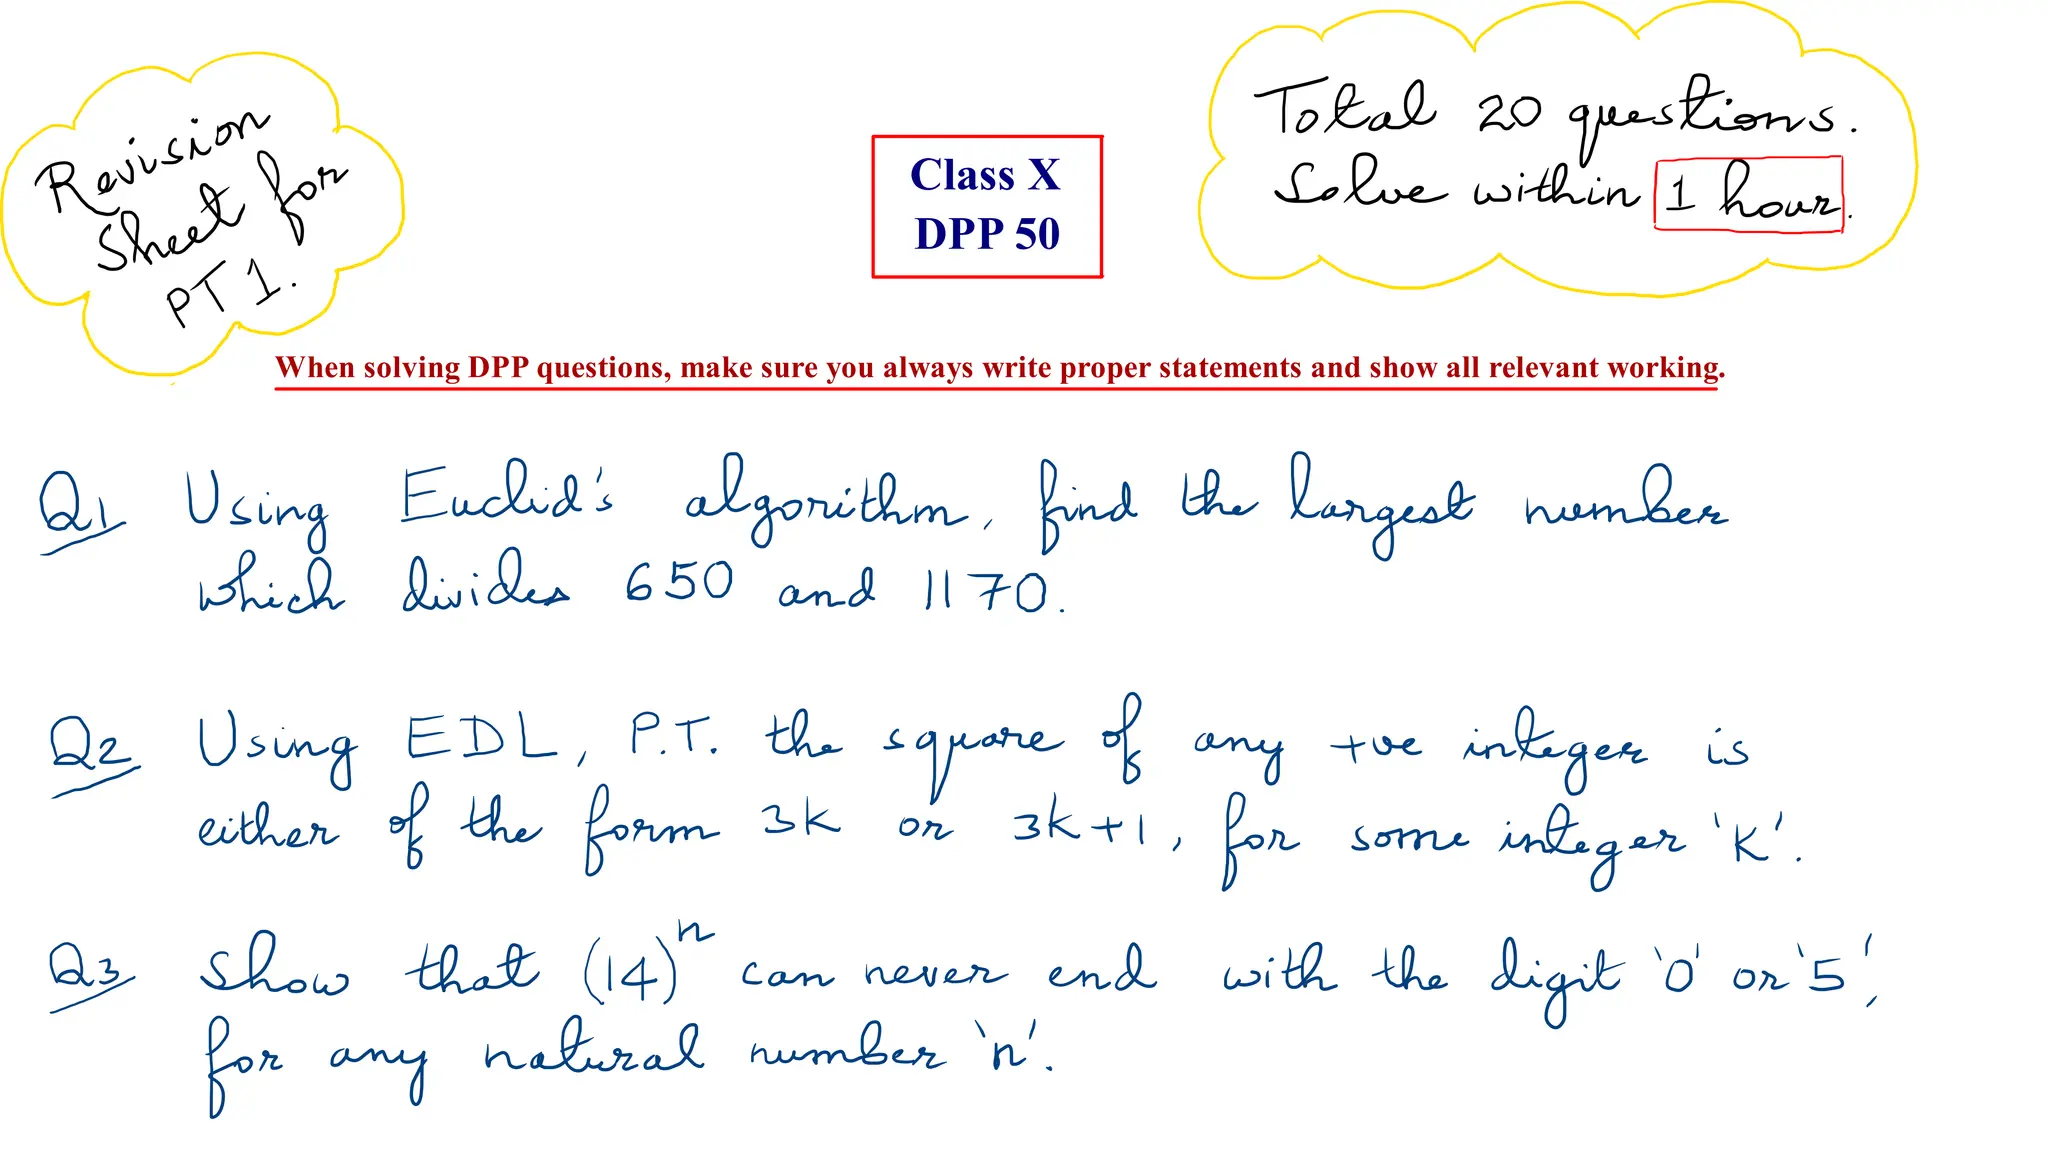 Revision
Sheet for
PT 1.
Class X
DPP 50
Total 20 questions.
Solve within 1 hour.
When solving DPP questions, make sure you always write proper statements and show all relevant working.
Q1 Using Euclid's algorithm, find the largest number
which divides 650 and 1170.
Q2 Using EDL, P.T. the square of any +ve integer is
either of the form 3k or 3k+1, for some integer 'k'.
Q3 Show that (14)ⁿ can never end with the digit '0' or '5',
for any natural number 'n'.